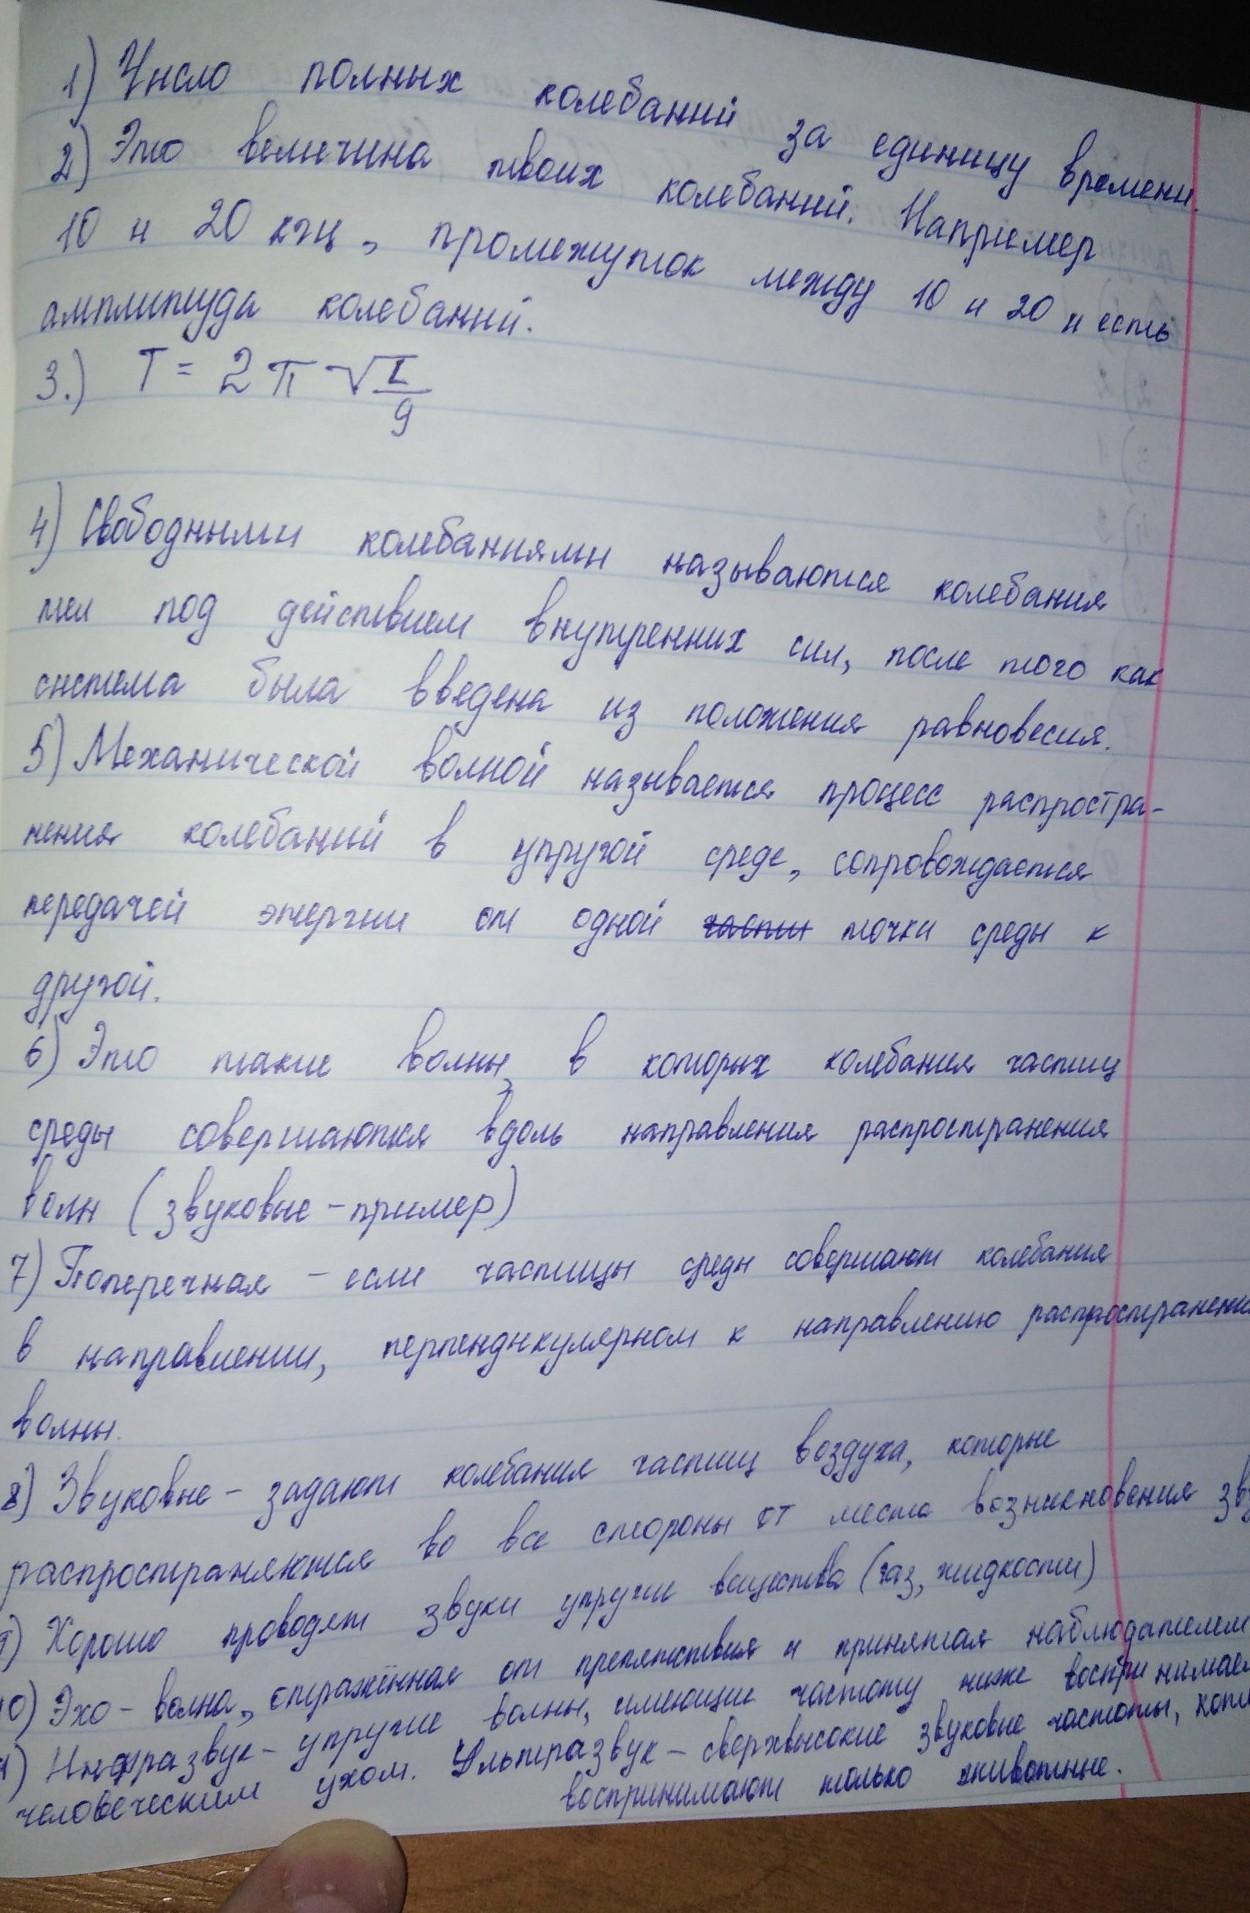 1) Число полных колебаний за единицу времени.
2) Это величина твоих колебаний. Например
10 и 20 кгц, промежуток между 10 и 20 и есть
амплитуда колебаний.
3.) T = 2π √I/g
4) Свободными колебаниями называются колебания
тел под действием внутренних сил, после того как
система была введена из положения равновесия.
5) Механической волной называется процесс распростра-
нения колебаний в упругой среде, сопровождается
передачей энергии от одной части точки среды к
другой.
6) Это такие волны, в которых колебания частиц
среды совершаются вдоль направления распространения
волн (звуковые - пример)
7) Поперечная - если частицы среды совершают колебания
в направлении, перпендикулярном к направлению распространени
волны.
8) Звуковые - задают колебания частиц воздуха, которые
распространяются во все стороны от места возникновения зв
9) Хорошо проводят звуки упругие вещества (газ, жидкости)
0) Эхо - волна, отражённая от препятствия и принятая наблюдателем
1) Инфразвук - упругие волны, имеющие частоту ниже воспринимае
человеческим ухом. Ультразвук - сверхвысокие звуковые частоты, кот
воспринимают только животные.